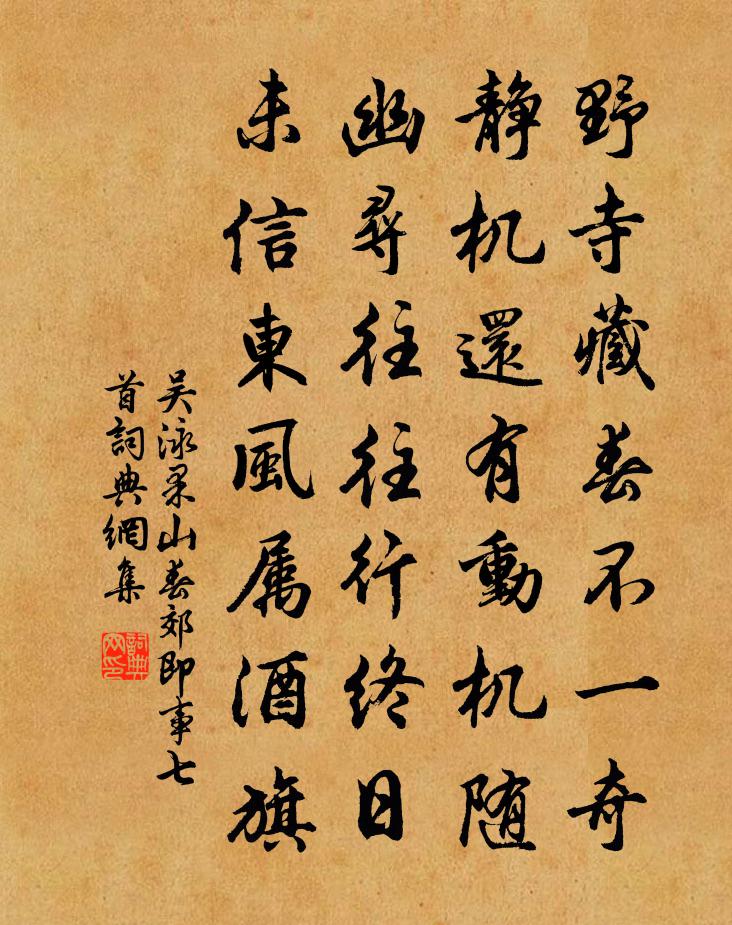 野寺藏春不一奇
静机還有動机随
幽尋往往行終日
未信東風属酒旗
吴泳果山春郊即事七
首詞典網集
詞典
网印